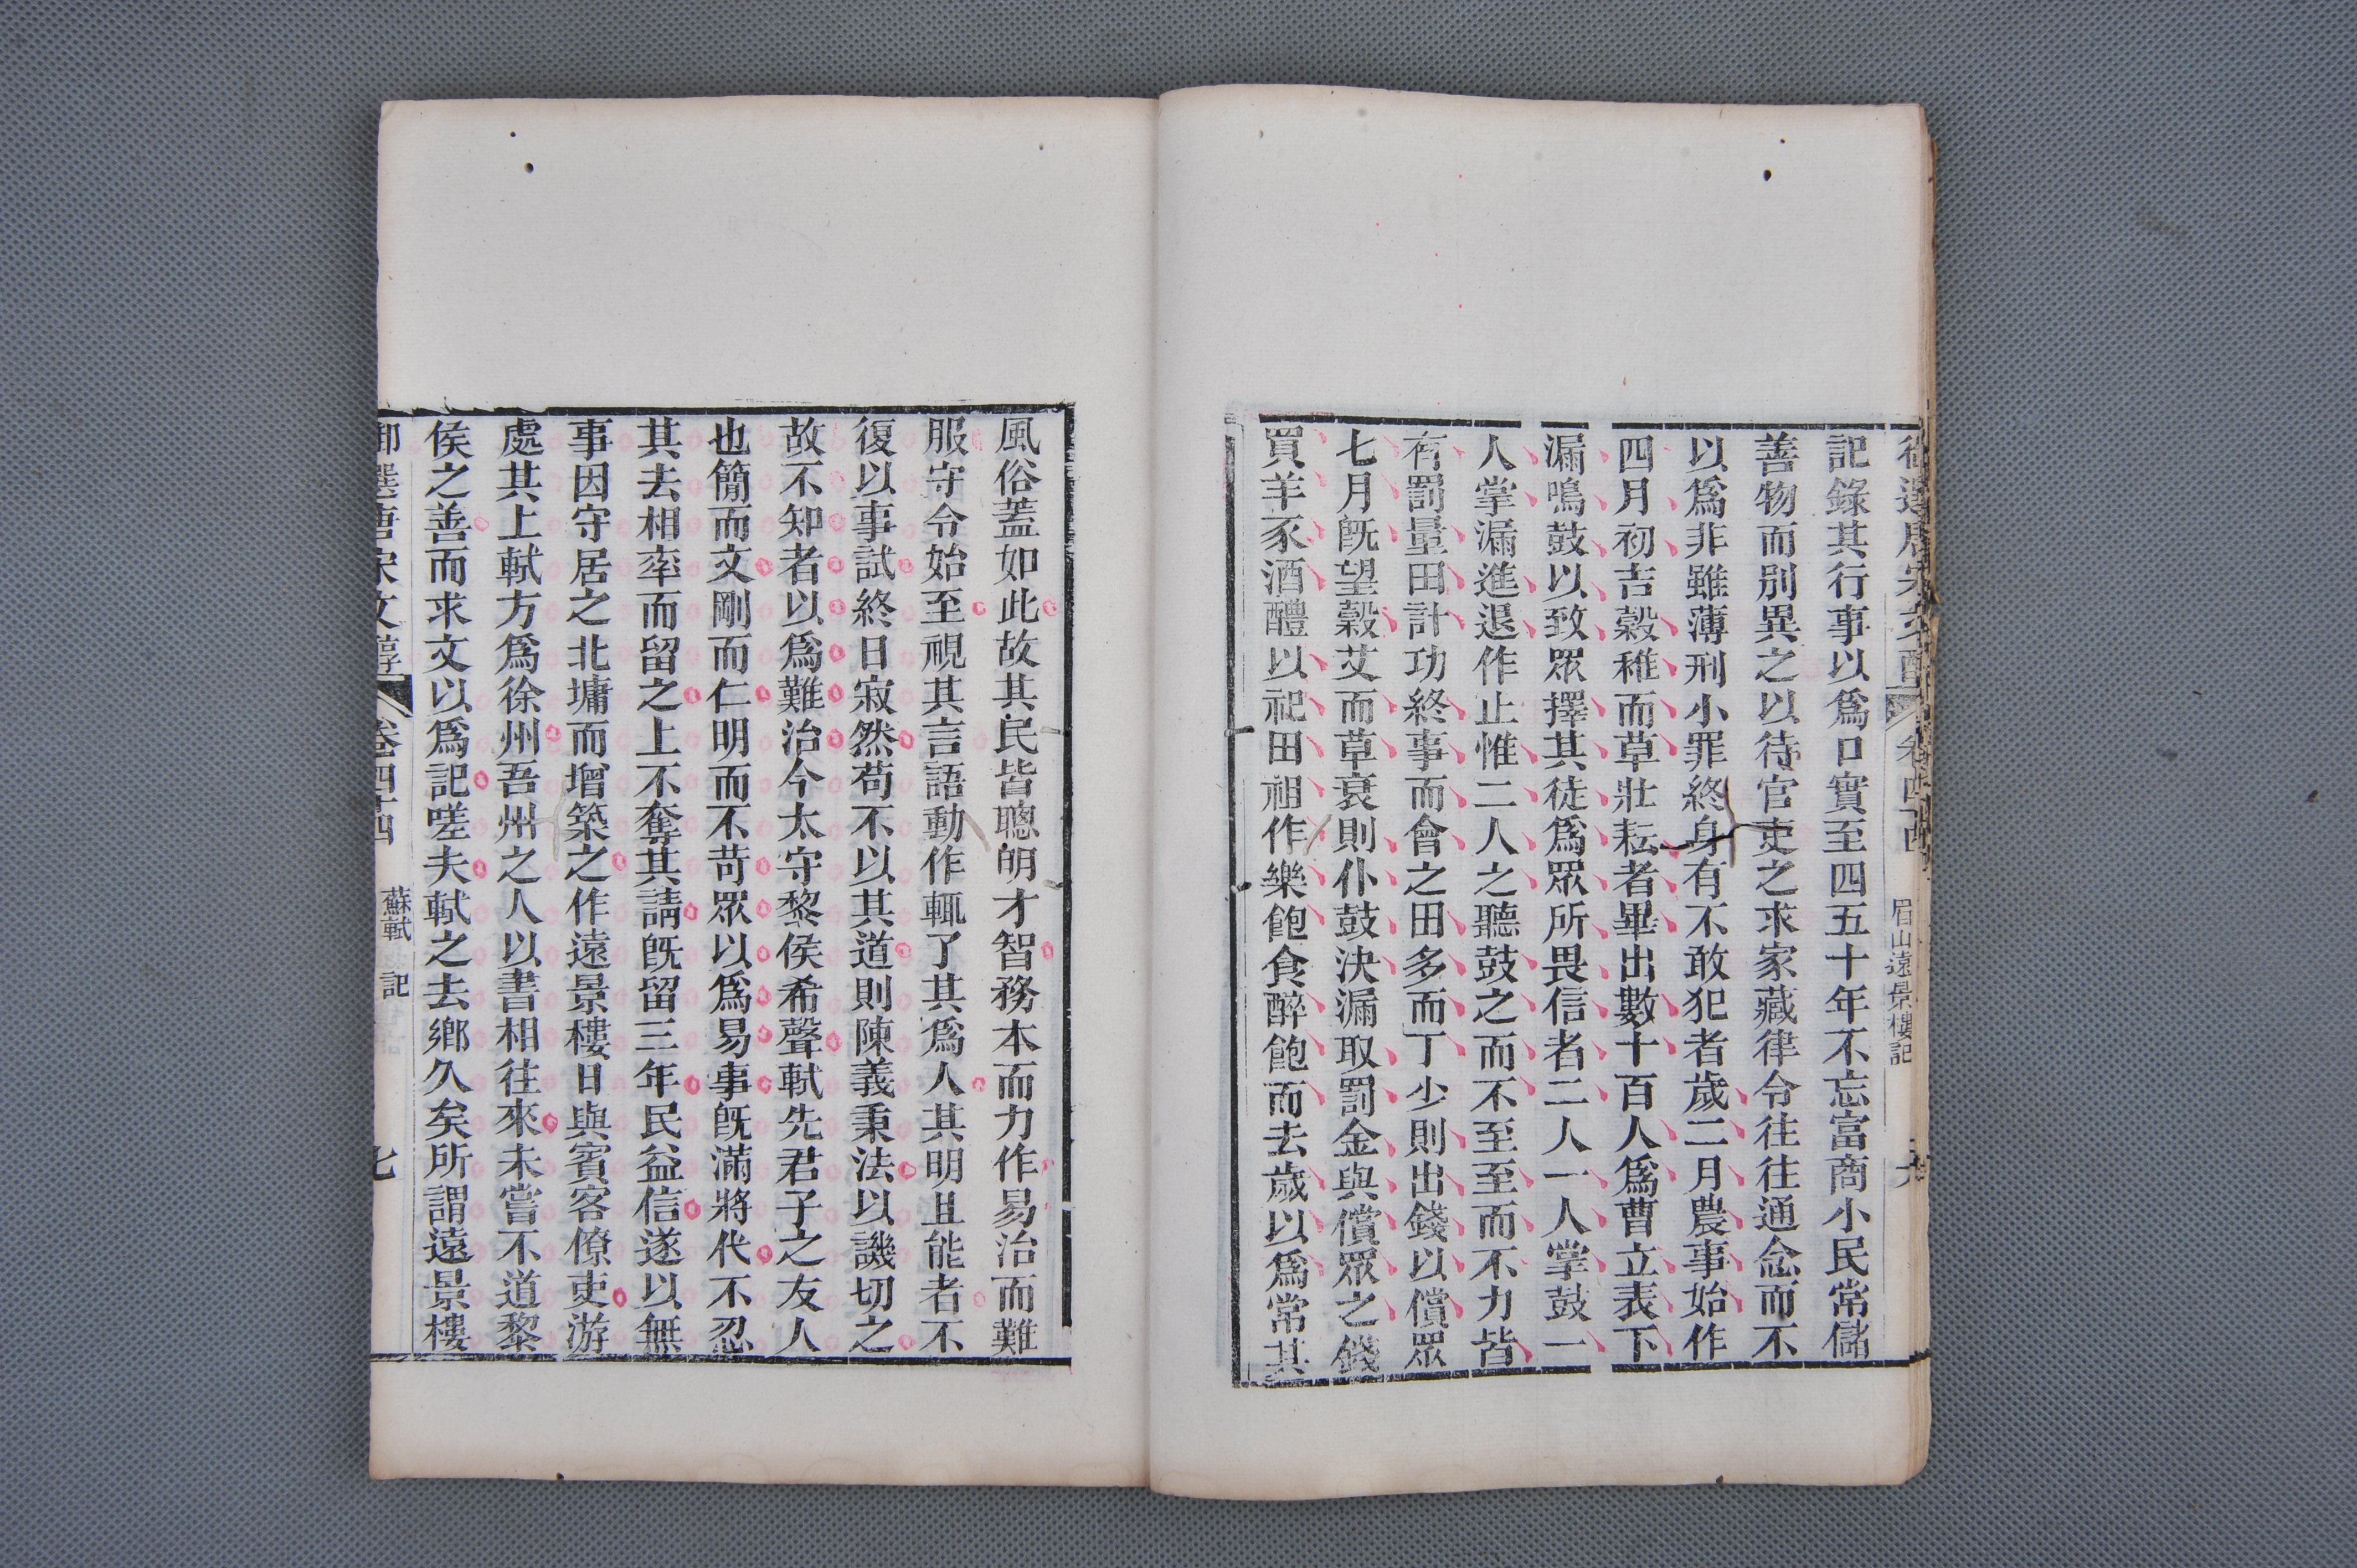 御選唐宋文醇 卷四十四 眉山遠景樓記 六
記錄其行事以爲口實至四五十年不忘富商小民常儲
善物而別異之以待官吏之求家藏律令往往通念而不
以爲非雖薄刑小罪終身有不敢犯者歲二月農事始作
四月初吉穀稚而草壯耘者畢出數十百人爲曹立表下
漏鳴鼓以致眾擇其徒爲眾所畏信者二人一人掌鼓一
人掌漏進退作止惟二人之聽鼓之而不至至而不力皆
有罰量田計功終事而會之田多而丁少則出錢以償眾
七月旣望穀艾而草衰則仆鼓決漏取罰金與償眾之錢
買羊豕酒醴以祀田祖作樂飽食醉飽而去歲以爲常其
風俗蓋如此故其民皆聰明才智務本而力作易治而難
服守令始至視其言語動作輒了其爲人其明且能者不
復以事試終日寂然苟不以其道則陳義秉法以譏切之
故不知者以爲難治今太守黎侯希聲軾先君子之友人
也簡而文剛而仁明而不苛眾以爲易事旣滿將代不忍
其去相率而留之上不奪其請旣留三年民益信遂以無
事因守居之北墉而增築之作遠景樓日與賓客僚吏游
處其上軾方爲徐州吾州之人以書相往來未嘗不道黎
侯之善而求文以爲記嗟夫軾之去鄉久矣所謂遠景樓
御選唐宋文醇 卷四十四 蘇軾 記 七